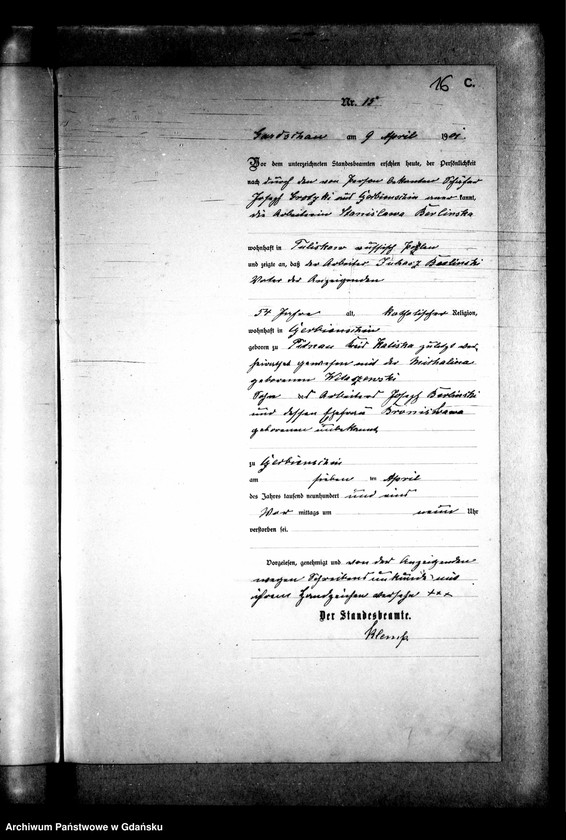 16 C.
Nr. 15
Gardschau am 9 April 1901.
Vor dem unterzeichneten Standesbeamten erschien heute, der Persönlichkeit
nach durch den von Person bekannten
Joseph aus Gerbienschin kannt,
die Arbeiterin Stanislawa Berlinska
wohnhaft in russisch Pohlen
und zeigte an, daß der Arbeiter Berlinski
Vater der Anzeigenden
54 Jahre alt, katholischer Religion,
wohnhaft in Gerbienschin
geboren zu zuletzt ver-
heirathet gewesen mit der Michalina
geborenen
Sohn des Arbeiters Joseph Berlinski
und dessen Ehefrau Bronislawa
geborenen unbekannt
zu Gerbienschin
am sieben ten April
des Jahres tausend neunhundert und eins
Vor mittags um neun Uhr
verstorben sei.
Vorgelesen, genehmigt und von der Anzeigenden
wegen Schreibensunkunde mit
ihrem Handzeichen versehn +++
Der Standesbeamte.
Archiwum Państwowe w Gdańsku